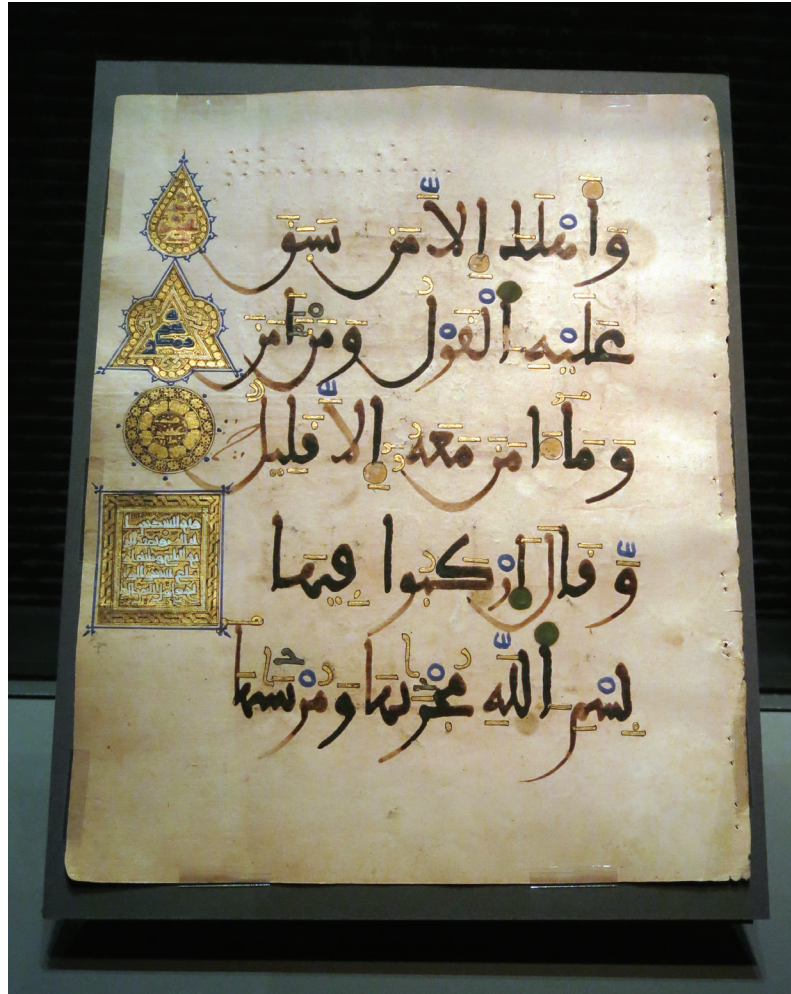 وَأَهْلَكَ إِلَّا مَن سَبَقَ
عَلَيْهِ اِ۬لْقَوْلُ وَمَنَ ـامَنَ
وَمَآ ءَامَنَ مَعَهُۥٓ إِلَّا قَلِيلٌ
وَّقَالَ اَ۪رْكَبُوا فِيهَا
بِسْمِ اِ۬للَّهِ مُجْر۪ىٰهَا وَمُرْسَىٰهَآ